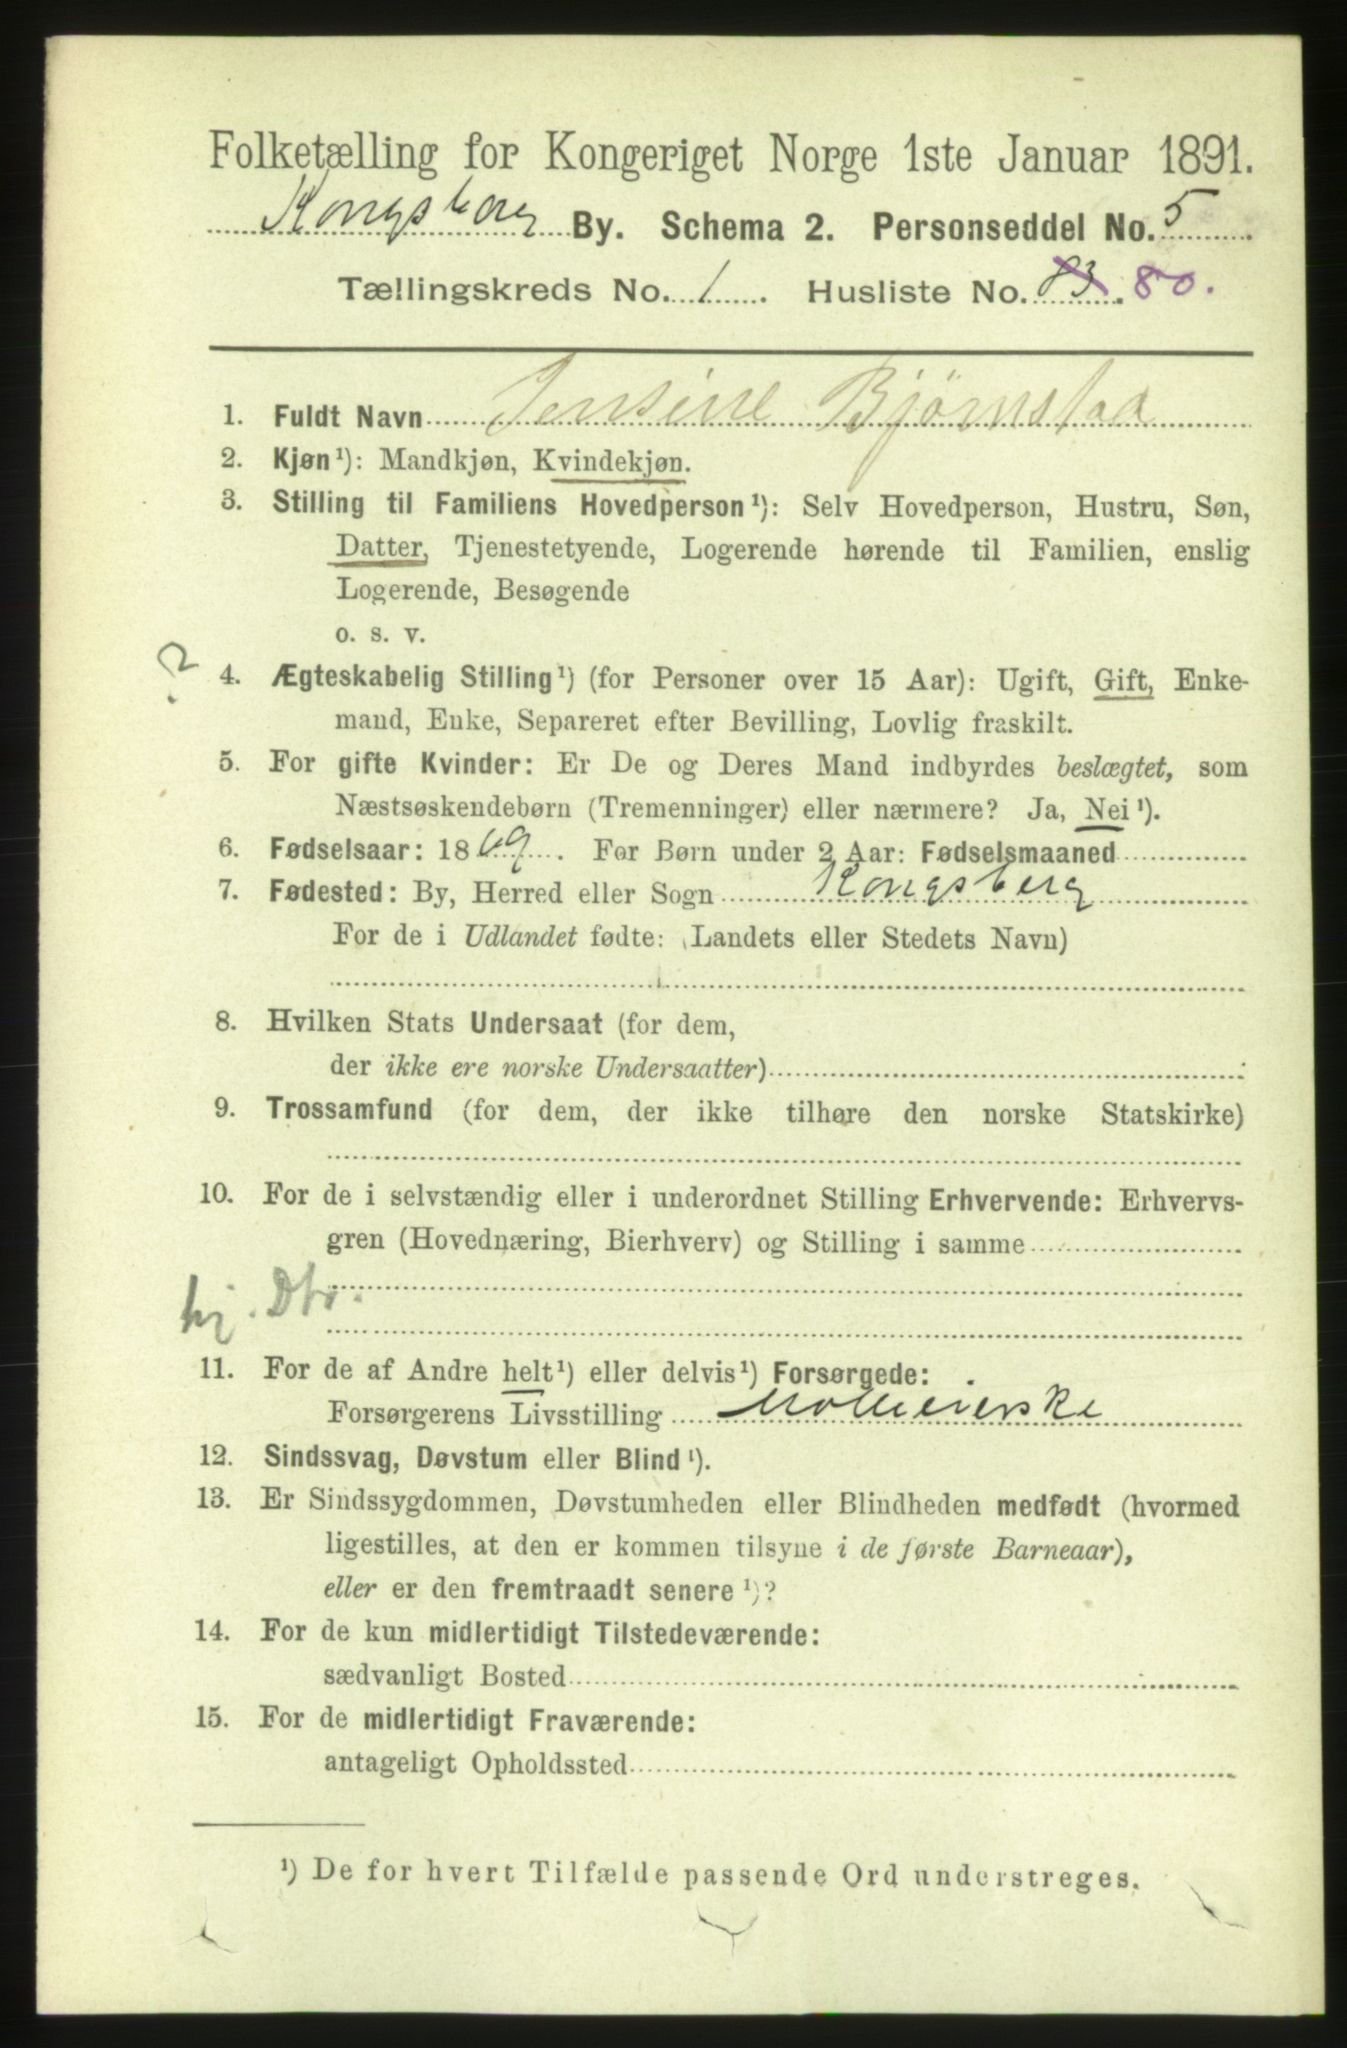 Folketælling for Kongeriget Norge 1ste Januar 1891.
Kongsberg By. Schema 2. Personseddel No. 5
Tællingskreds No. 1. Husliste No. 83. 80.
1. Fuldt Navn Jensine Bjørnstad
2. Kjøn¹): Mandkjøn, Kvindekjøn.
3. Stilling til Familiens Hovedperson¹): Selv Hovedperson, Hustru, Søn,
Datter, Tjenestetyende, Logerende hørende til Familien, enslig
Logerende, Besøgende
o. s. v.
? 4. Ægteskabelig Stilling¹) (for Personer over 15 Aar): Ugift, Gift, Enke-
mand, Enke, Separeret efter Bevilling, Lovlig fraskilt.
5. For gifte Kvinder: Er De og Deres Mand indbyrdes beslægtet, som
Næstsøskendebørn (Tremenninger) eller nærmere? Ja, Nei¹).
6. Fødselsaar: 1869. For Børn under 2 Aar: Fødselsmaaned
7. Fødested: By, Herred eller Sogn Kongsberg
For de i Udlandet fødte: (Landets eller Stedets Navn)
8. Hvilken Stats Undersaat (for dem,
der ikke ere norske Undersaatter)
9. Trossamfund (for dem, der ikke tilhøre den norske Statskirke)
10. For de i selvstændig eller i underordnet Stilling Erhvervende: Erhvervs-
gren (Hovednæring, Bierhverv) og Stilling i samme
hj. Dtr.
11. For de af Andre helt¹) eller delvis¹) Forsørgede:
Forsørgerens Livsstilling
12. Sindssvag, Døvstum eller Blind¹).
13. Er Sindssygdommen, Døvstumheden eller Blindheden medfødt (hvormed
ligestilles, at den er kommen tilsyne i de første Barneaar),
eller er den fremtraadt senere¹)?
14. For de kun midlertidigt Tilstedeværende:
sædvanligt Bosted
15. For de midlertidigt Fraværende:
antageligt Opholdssted
¹) De for hvert Tilfælde passende Ord understreges.